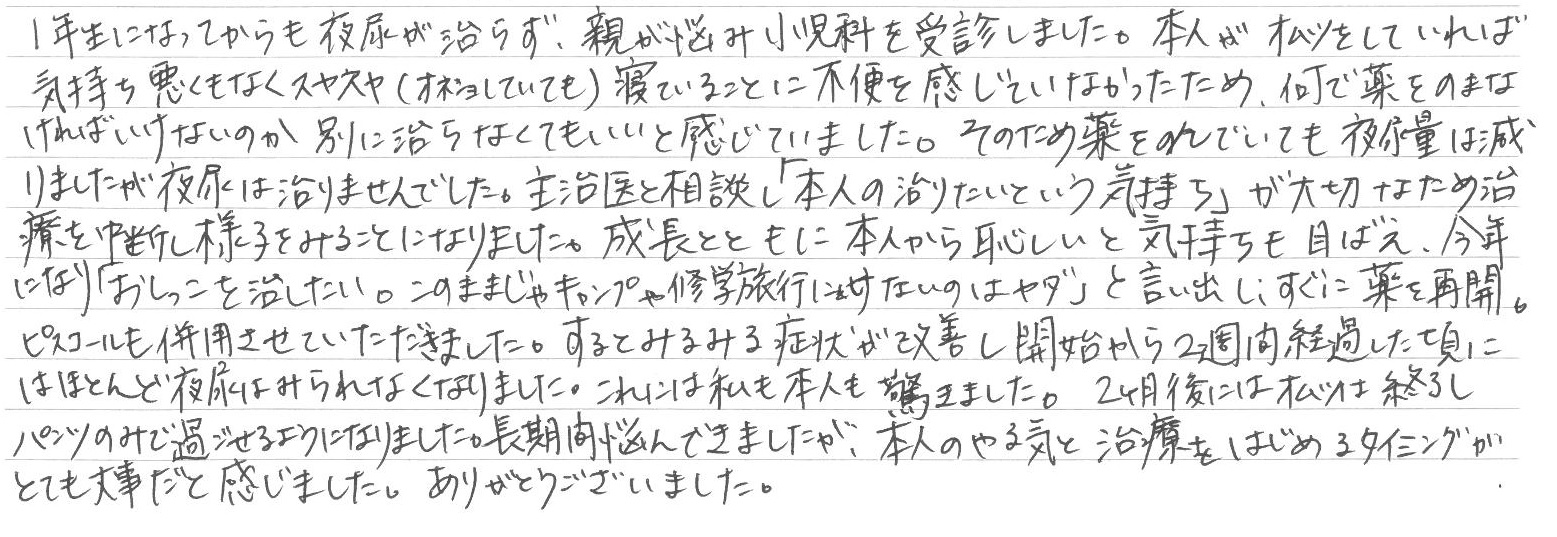 1年生になってからも夜尿が治らず、親が悩み小児科を受診しました。本人がオムツをしていれば
気持ち悪くもなくスヤスヤ(オネショしていても)寝ていることに不便を感じていなかったため、何で薬をのまな
ければいけないのか 別に治らなくてもいいと感じていました。そのため薬をのんでいても夜尿量は減
りましたが夜尿は治りませんでした。主治医と相談し「本人の治りたいという気持ち」が大切なため治
療を中断し様子をみることになりました。成長とともに本人から恥しいと気持ちも目ばえ、今年
になり「おしっこを治したい。このままじゃキャンプや修学旅行に出せないのはヤダ」と言い出し、すぐに薬を再開。
ピスコールも併用させていただきました。するとみるみる症状が改善し開始から2週間経過した頃に
はほとんど夜尿はみられなくなりました。これには私も本人も驚きました。2ヶ月後にはオムツは終了し
パンツのみで過ごせるようになりました。長期間悩んできましたが、本人のやる気と治療をはじめるタイミングが
とても大事だと感じました。ありがとうございました。